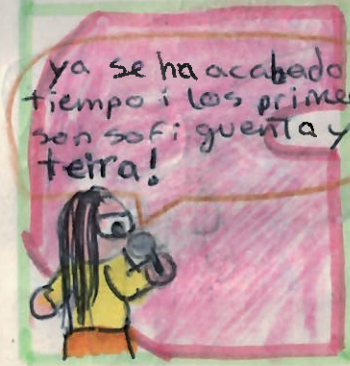 ya se ha acabado
tiempo i los prime
son sofi guenta y
teira!